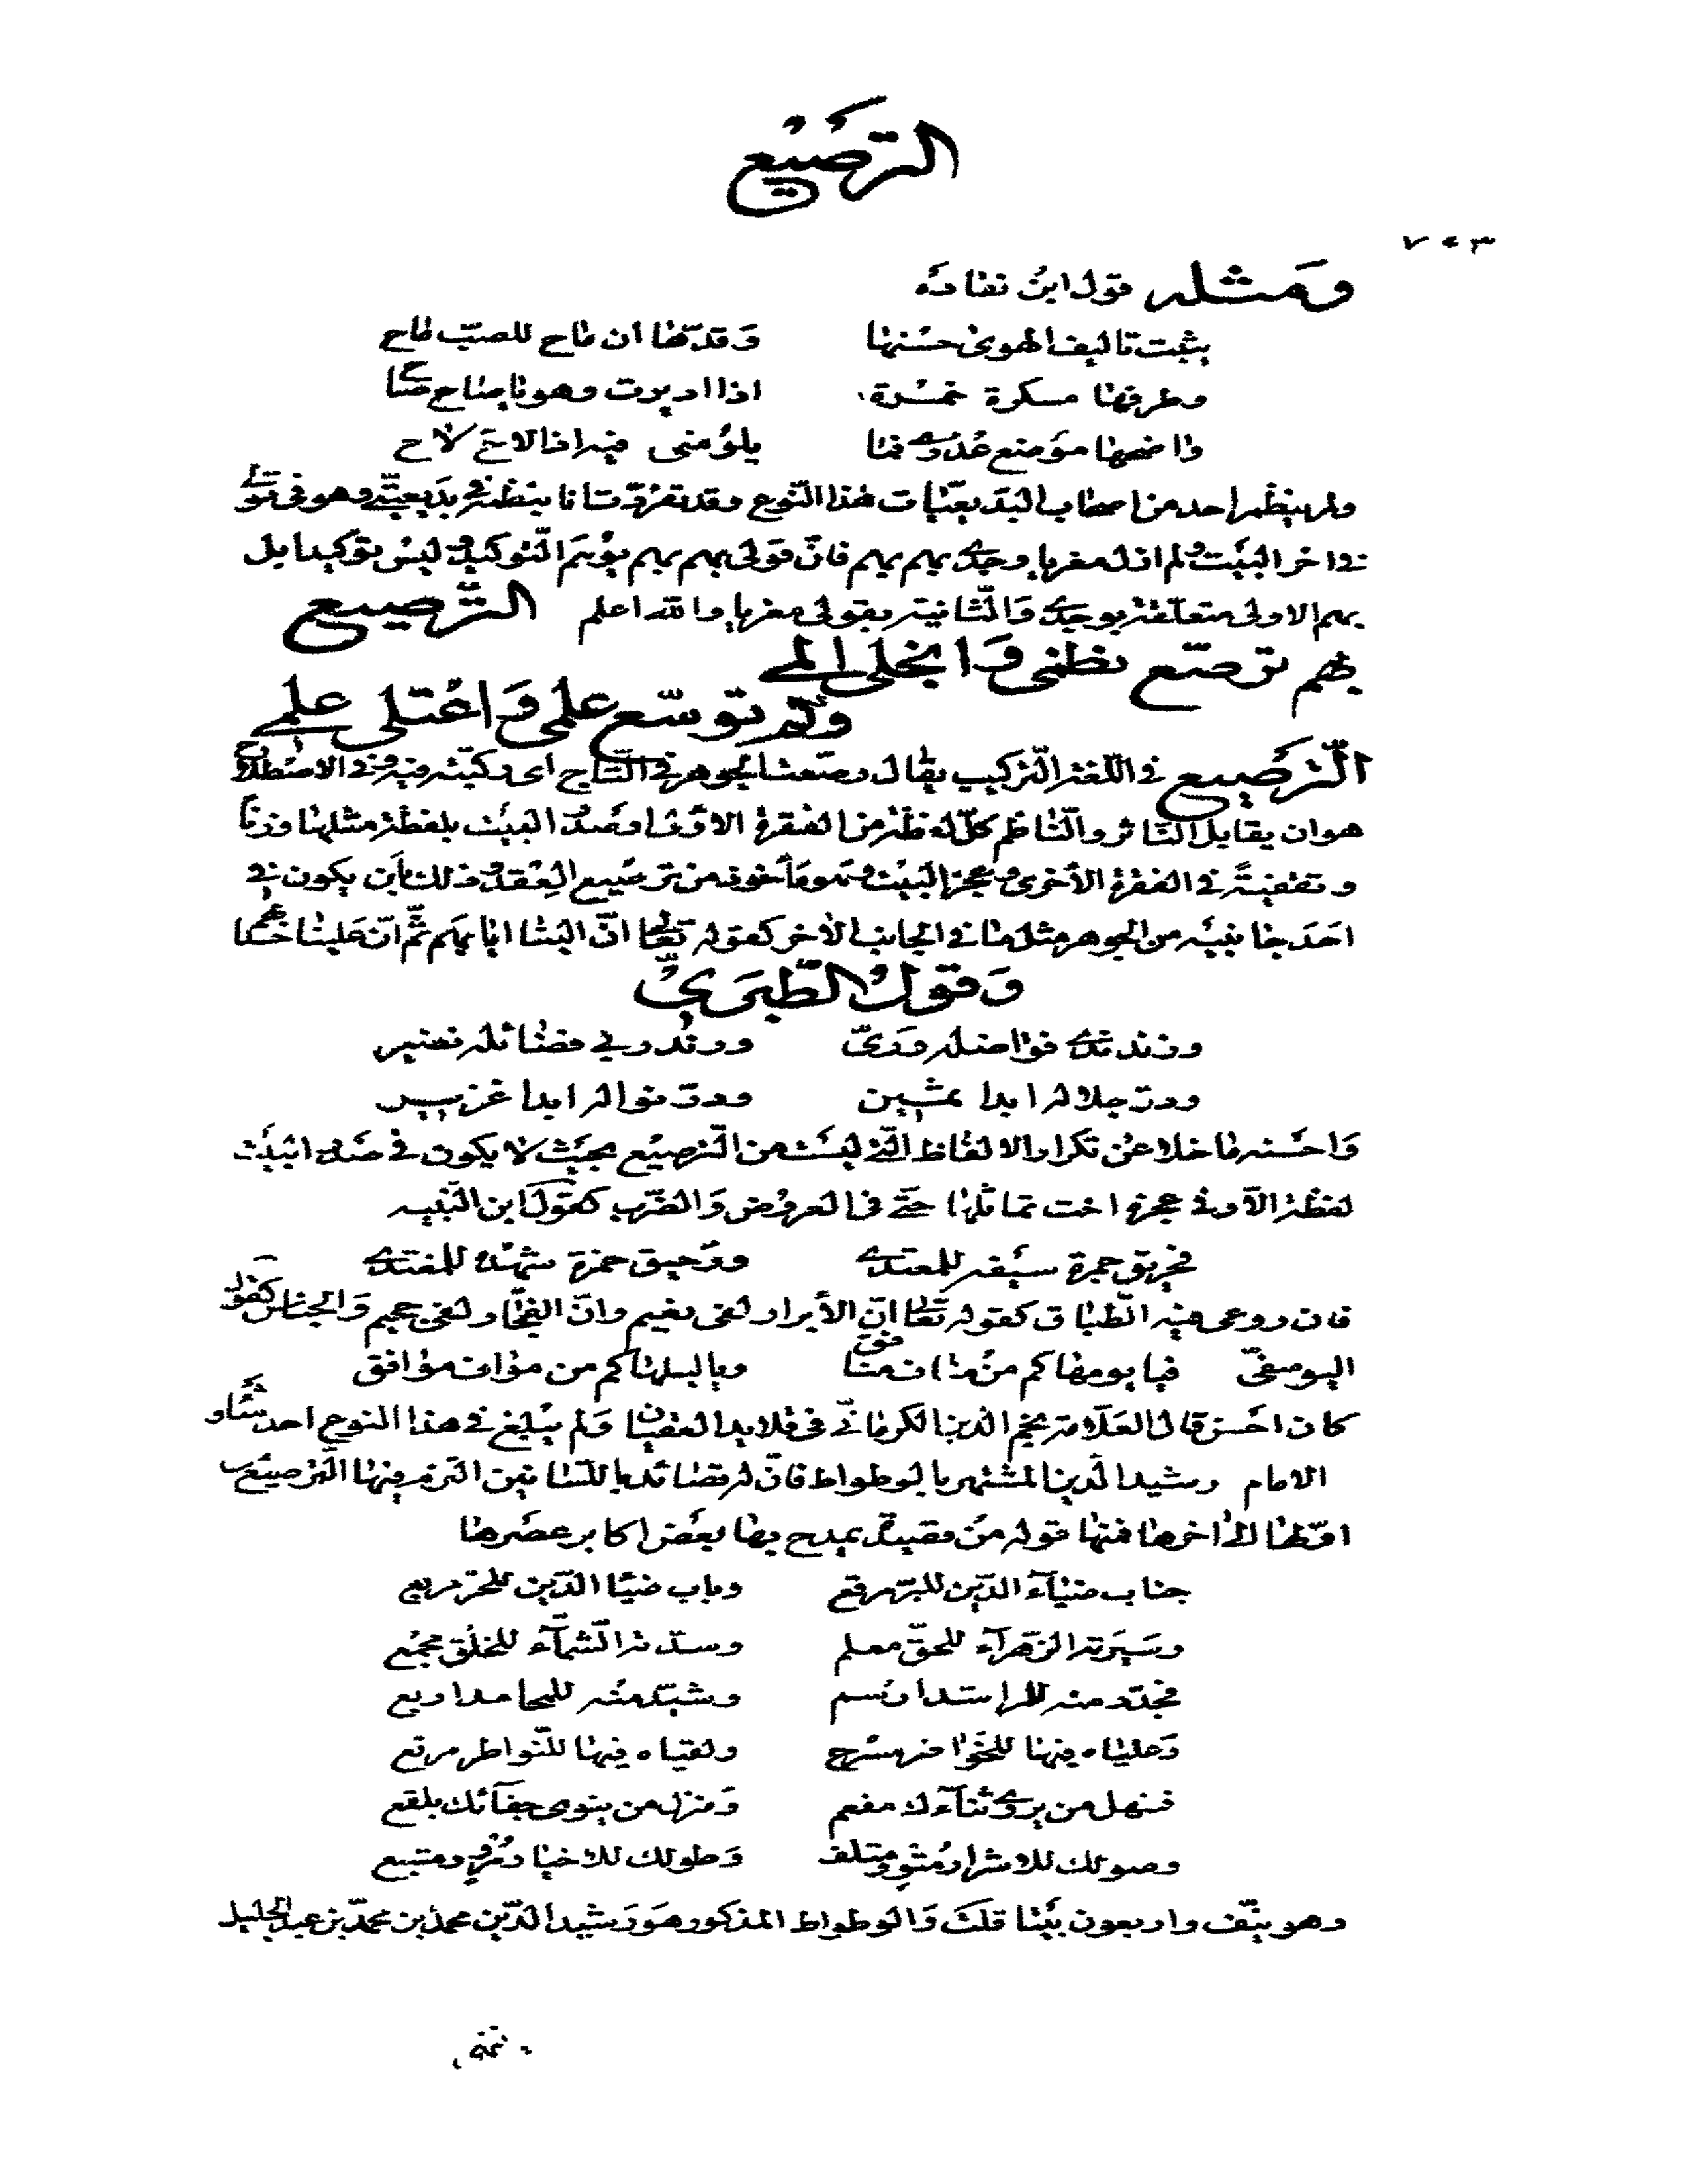 الترصيع
ومثله قول ابن نفاده
يثبت تاليف الهوى حسنها وقدّها ان طاح للصبّ طاح
وطرفها مسكرة خمرة اذا ادبرت وهو يا صاح صحا
واضحها موضع عذري فما يلومني فيه اذا لاح لاح
ولم ينظم احد من اصحاب البديعيّات هذا النّوع وقد تفرّدت انا بنظمه في بديعيتي وهو في قولي
في اخر البيت ولم ازل مغريا وجدي بهم بهم فانّ قولي بهم بهم يوهم التّوكيد وليس توكيدا بل
بهم الاولى متعلّقة بوجدي والثّانية بقولي مغريا والله اعلم الترصيع
بهم ترصّع نظمي وانجلى المي
وكم توسّع علمي واعتلى علمي
التّرصيع في اللّغة التّركيب يقال رصّعت الجوهر في التّاج اى ركبته فيه وفي الاصطلاح
هو ان يقابل النّاثر والنّاظم كلّ لفظة من الفقرة الاولى او صدر البيت بلفظة مثلها وزنا
وتقفية في الفقرة الأخرى وعجز البيت وهو مأخوذ من ترصيع العقد وذلك بأن يكون في
احد جانبيه من الجوهر مثل ما في الجانب الآخر كقوله تعالى انّ الينا ايابهم ثمّ انّ علينا حسابهم
وقول الطّبري
وزند ندى فواضله وريّ ورند ربى فضائله نضير
ودرّ جلاله ابدا ثمين ودرّ نواله ابدا غزير
واحسنه ما خلا عن تكرار الالفاظ التي ليست من التّرصيع بحيث لا يكون في صدر البيت
لفظة الّا وفي عجزه اخت تماثلها حتّى في العروض والضّرب كقول ابن النّبيه
فحريق جمرة سيفه للمعتدى ورحيق خمرة شهده للمفتدى
فان روعى فيه الطّباق كقوله تعالى انّ الأبرار لفى نعيم وانّ الفجّار لفى جحيم والجناس كقول
اليوصفيّ فيا يومها كم من مناف منافق ويا ليلها كم من مواف موافق
كان احسن قال العلّامة نجم الدين الكرماني في قلايد العقيان ولم يبلغ في هذا النوع احد شأو
الامام رشيد الدّين المشتهر بالوطواط فانّ له قصائد باللّسانين التزم فيها التّرصيع من
اوّلها الى اخرها فمنها قوله من قصيدة يمدح بها بعض اكابر عصرها
جناب ضياء الدّين للبرّ مرتع وباب ضيا الدّين للحرّ مربع
وسيرته الزهرآء للحقّ معلم وسدّته الشّمآء للخلق مجمع
فجدّد منه للراشد ارسم وشيّد منه للمحامد اربع
وعلياه فيها للخواطر مسرح ولقياه فيها للنّواطر مرتع
فمنهل من يروي ثنآءك مفعم ومنزل من ينوى جفآئك بلقع
وصولك للاشرار مثو ومتلف وطولك للاخيار مرو ومتبع
وهو نيّف واربعون بيتا قلت والوطواط المذكور هو رشيد الدّين محمد بن محمّد بن عبد الجليل